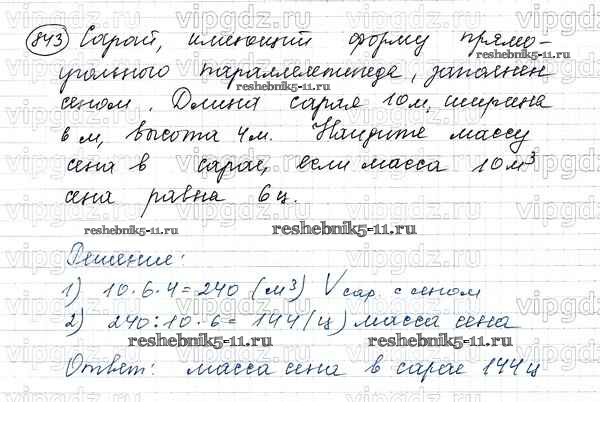 843 Сарай, имеющий форму прямо-
угольного параллелепипеда, заполнен
сеном. Длина сарая 10 м, ширина
6 м, высота 4 м. Найдите массу
сена в сарае, если масса 10 м³
сена равна 6 ц.
Решение:
1) 10·6·4=240 (м³) V сар. с сеном
2) 240:10·6=144 (ц) масса сена
Ответ: масса сена в сарае 144 ц
vipgdz.ru
reshebnik5-11.ru